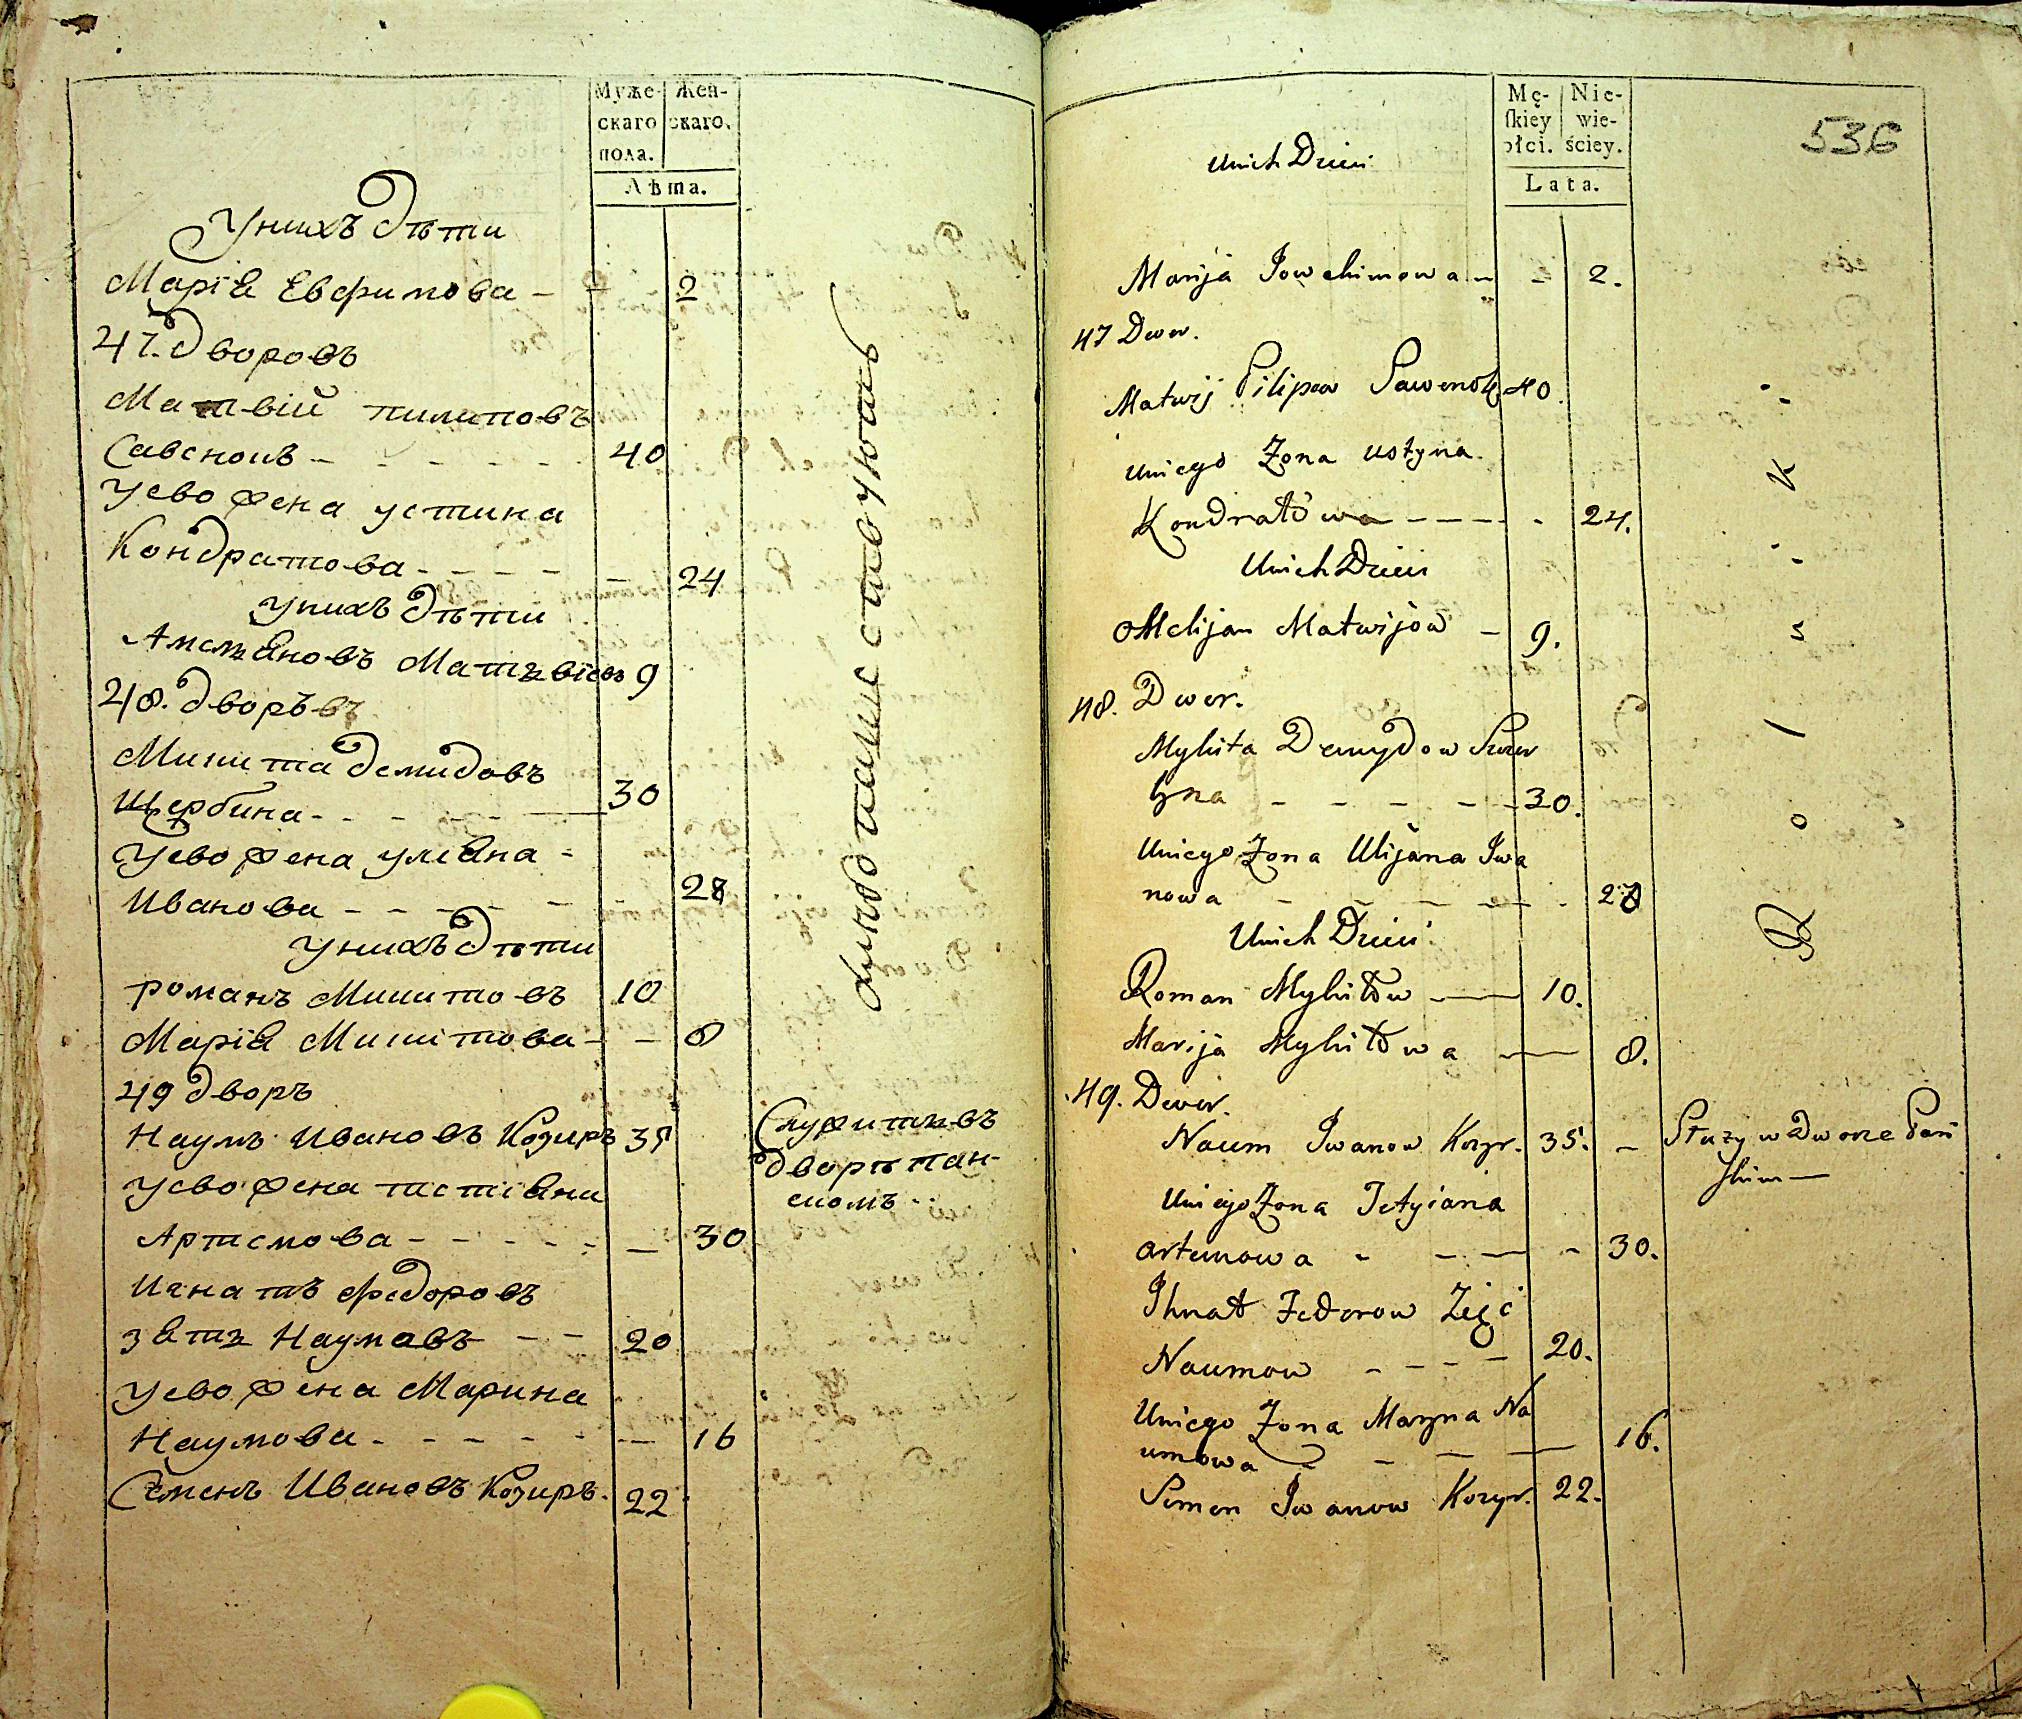 Муже- Жен-
скаго скаго.
пола.
Лѣта.
Унихъ Дѣти
Марїя Евфимова - - 2
47. Дворовъ
Матвій пилиповъ
Савенокъ - - - - - 40
Уево жена устина
Кондратова - - - - - 24
Унихъ Дѣти
Амельяновъ Матьвіевъ 9
48. дворъвъ
Микита Демидовъ
Щербина - - - - - 30
Уево жена улияна -
Иванова - - - - - - 28
Унихъ Дѣти
романъ Микитовъ 10
Марїя Микитова - - 8
49 дворъ
Наумъ Ивановъ Козиръ 35
Служитъвъ
дворѣ пан-
скомъ..
Уево жена тетияна
Артемова - - - - - - 30
Игнатъ Федоровъ
зять Наумовъ - - 20
Уево жена Марина
Наумова - - - - - - 16
Семенъ Ивановъ Козиръ. 22
хлебопашествуютъ
Mę- Nie-
skiey wie-
płci. ściey.
Lata.
536
Unich Dzieci
Marija Jowchimowa - - 2.
47 Dwor.
Matwij Pilipow Sawenok 40.
Uniego Żona Ustyna
Kondratowa - - - - - 24.
Unich Dzieci
OMelijan Matwijow - 9.
48. Dwor.
Mykita Demydow Szczer
byna - - - - - 30.
Uniego Żona Ulijana Iwa
nowa - - - - - 28
Unich Dzieci
Roman Mykitow - 10.
Marija Mykitowa - 8.
49. Dwor.
Naum Iwanow Kozyr. 35. - Służy w Dworze Pań
skim -
Uniego Żona Tetyiana
artemowa - - - - 30.
Ihnat Fedorow Zięć
Naumow - - - - 20.
Uniego Żona Maryna Na
umowa - - - - 16.
Semen Iwanow Kozyr. 22.
Rolniki